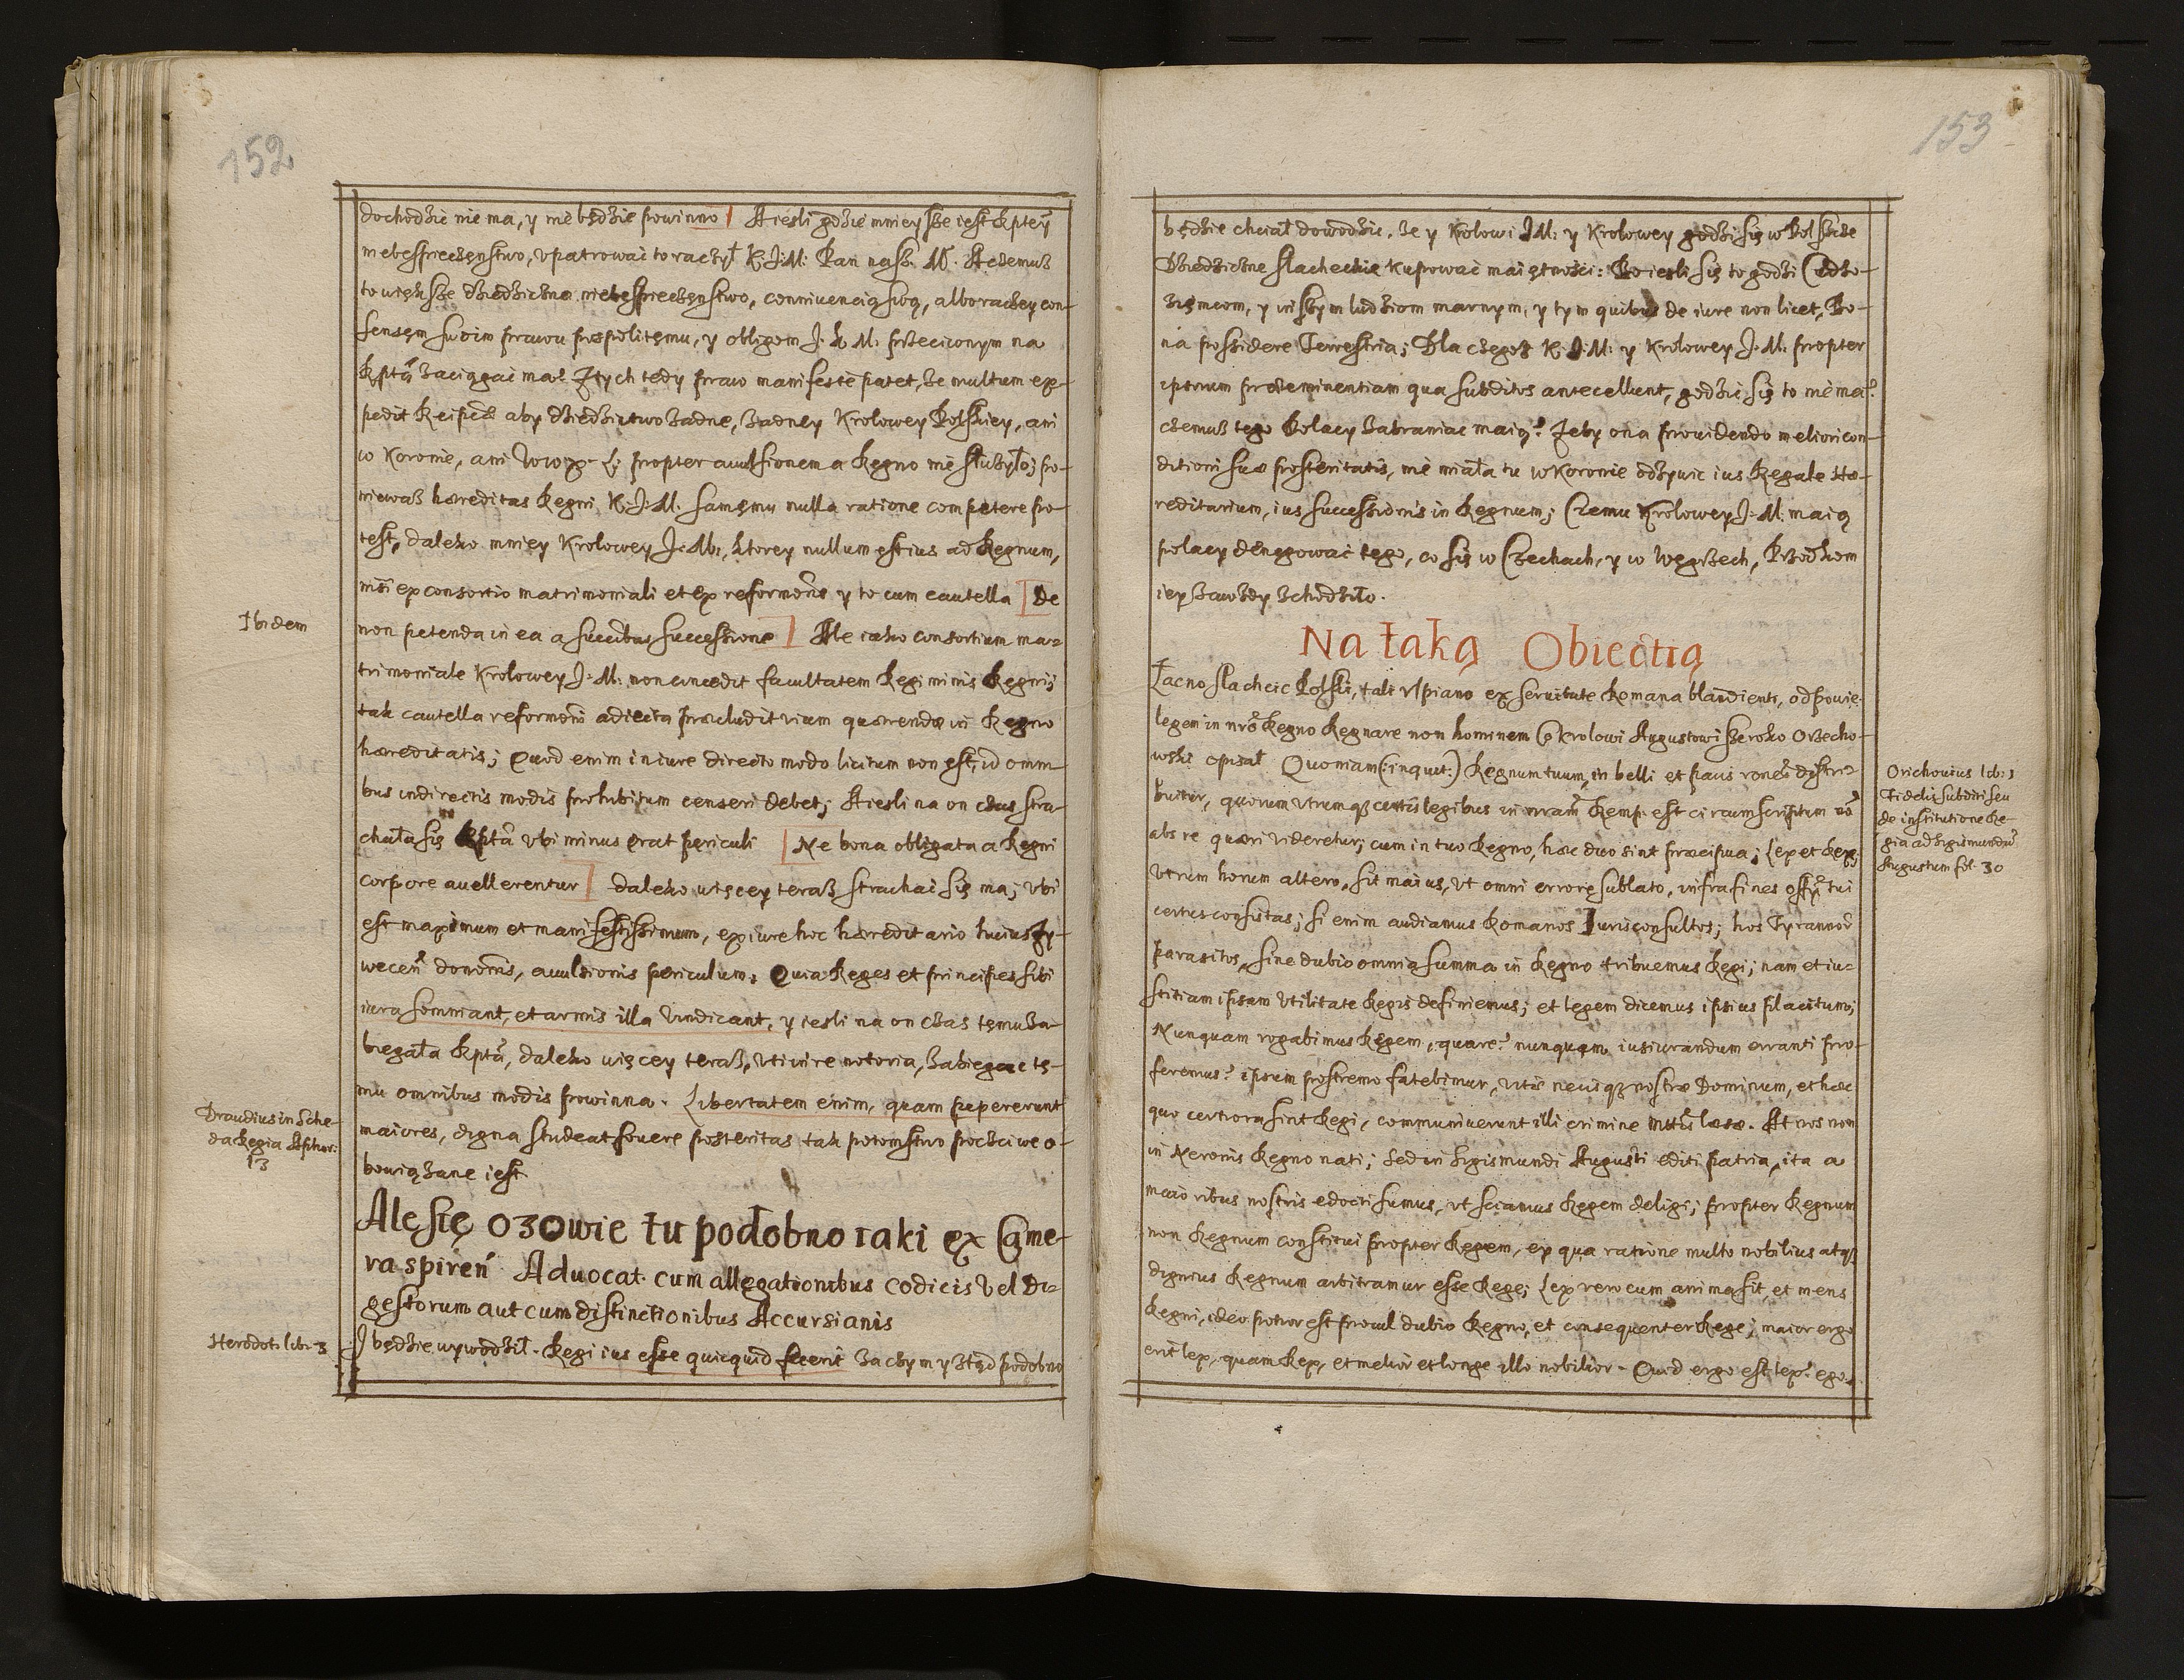 152
dochodzić nie ma, y nie będzie powinno A iesli gdzie mnieysze iest Rptey
niebespieczęnstwo, vpatrować to raczył K. J. M. Pan nasz. M. A czemuż
to więksże dziedziczne niebespieczęnstwo, conniuencią swą, albo raczey con-
sensęm swoim prawu pospolitęmu, y obligom J. K. M. przeciwnym na
Rptą zaciągać ma? Z tych tedy praw manifestè patet, że multum ex-
pedit Reipcæ aby dziedzictwo żadne, żadney Krolowey Polskiey, ani
w Koronie, ani W. W. X. L. propter auulsionem a Regno nie służyło; po-
niewasz hæreditas Regni K. J. M. samęmu nulla ratione competere po-
test, daleko mniey Krolowey J. M., ktorey nullum est ius ad Regnum,
nisi ex consortio matrimoniali et ex reformõne y to cum cautella De
Ibidem
non petenda in ea a succibus successione Ale iako consortium ma-
trimoniale Krolowey J. M. non concedit facultatem Regiminis Regni;
tak cautella reformõni adiecta præcludit viam quærendæ in Regno
hæreditatis; Quod enim in iure directo modo licitum non est, id omni
bus indirectis modis prohibitum censeri debet; A iesli na on czas stra-
chała się Rptã vbi minus erat periculi Ne bona obligata a Regni
corpore auellerentur daleko więcey terasz strachać się ma; vbi
est maximum et manifestissimum, ex iure hoc hæreditario huius Zy-
wecen donõnis, auulsionis periculum. Quia Reges et principes sibi
iura somniant, et armis illa vindicant, y iesli na on czas tęmu za-
biegała Rptã, daleko więcey terasz, vti in re notoria, zabiegać tę-
mu omnibus modis powinna. Libertatem enim, quam pepererunt
Draudius in Sche-
da Regia Aphor:
13
maiores, digna studeat fouere posteritas tak potomstwo poczciwe o-
bowiązane iest
Ale się ozowie tu podobno iaki ex Came-
ra spireñ Aduocat. cum allegationibus codicis vel Di-
gestorum aut cum distinctionibus Accursianis
Herodot: lib: 3
J będzie wywodził. Regi ius esse quicquid fecerit Za czym y ztąd podobno
153
będzie chciał dowodzić, że y Krolowi J. M. y Krolowey godzi się w Polszcze
Dziedziczne slacheckie kupować maiętności: Bo iesli się to godzi Cudzo-
zięmcom, y inszym ludziom marnym, y tym quibus de iure non licet, Bo-
na possidere Terrestria; Dla czegosz K. J. M. y Krolowey J. M. propter
ipsorum præeminentiam qua subditos antecellunt, godzić się to nie ma?
czemusz tego Polacy zabraniać maią? Zeby ona prouidendo meliori con-
ditioni suæ posteritatis, nie miała tu w Koronie odżywić ius Regale Hæ-
reditarium, ius successionis in Regnum; Czemu Krolowey J. M. maią
polacy denegować tego, co się w Czechach, y w Węgrzech, Przodkom
iey zawzdy zchodziło.
Na taką Obiectią
Łacno slachcic Polski, tali vlpiano ex seruitute Romana blandienti, odpowie.
legem in nrõ Regno Regnare non hominem Co Krolowi Augustowi szeroko Orzecho-
wski opisał Quoniam (: inquit :) Regnum tuum, in belli et pacis rones distri-
Orichouius lib: 1
Fidelis subditi seu
de institutione Re-
gia ad Sigismundũ
Augustum fol. 30
buitur, quorum vtrumq; certis legibus in nram Remp. est circumscriptum nõ
abs re quæri videretur; cum in tuo Regno, hæc duo sint præcipua; Lex et Rex,
vtrum horum altero, sit maius, vt omni errore sublato, infra fines officÿ tui
certus consistas; si enim audiamus Romanos Jurisconsultos; hos Tyrannorũ
parasitos, sine dubio omnia summa in Regno tribuemus Regi; nam et iu-
stitiam ipsam vtilitate Regis definiemus; et legem dicemus ipsius placitum;
Nunquam rogabimus Regem, quare? nunquam iusiurandum erranti pro-
feremus? ipsum postremo fatebimur, vitæ necisq; nostræ Dominum, et hæc
quo certiora sint Regi, communiuerunt illi crimine mttis læsæ. At nos non
in Neronis Regno nati; sed in Sigismundi Augusti editi patria, ita a
maioribus nostris edocti sumus, vt sciamus Regem deligi; propter Regnum
non Regnum constitui propter Regem, ex qua ratione multo nobilius atq;
dignius Regnum arbitramur esse Rege; Lex vero cum anima sit, et mens
Regni, ideo potior est procul dubio Regno, et consequenter Rege; maior ergo
erit lex, quam Rex, et melior et longe illo nobilior. Quid ergo est lex? ego